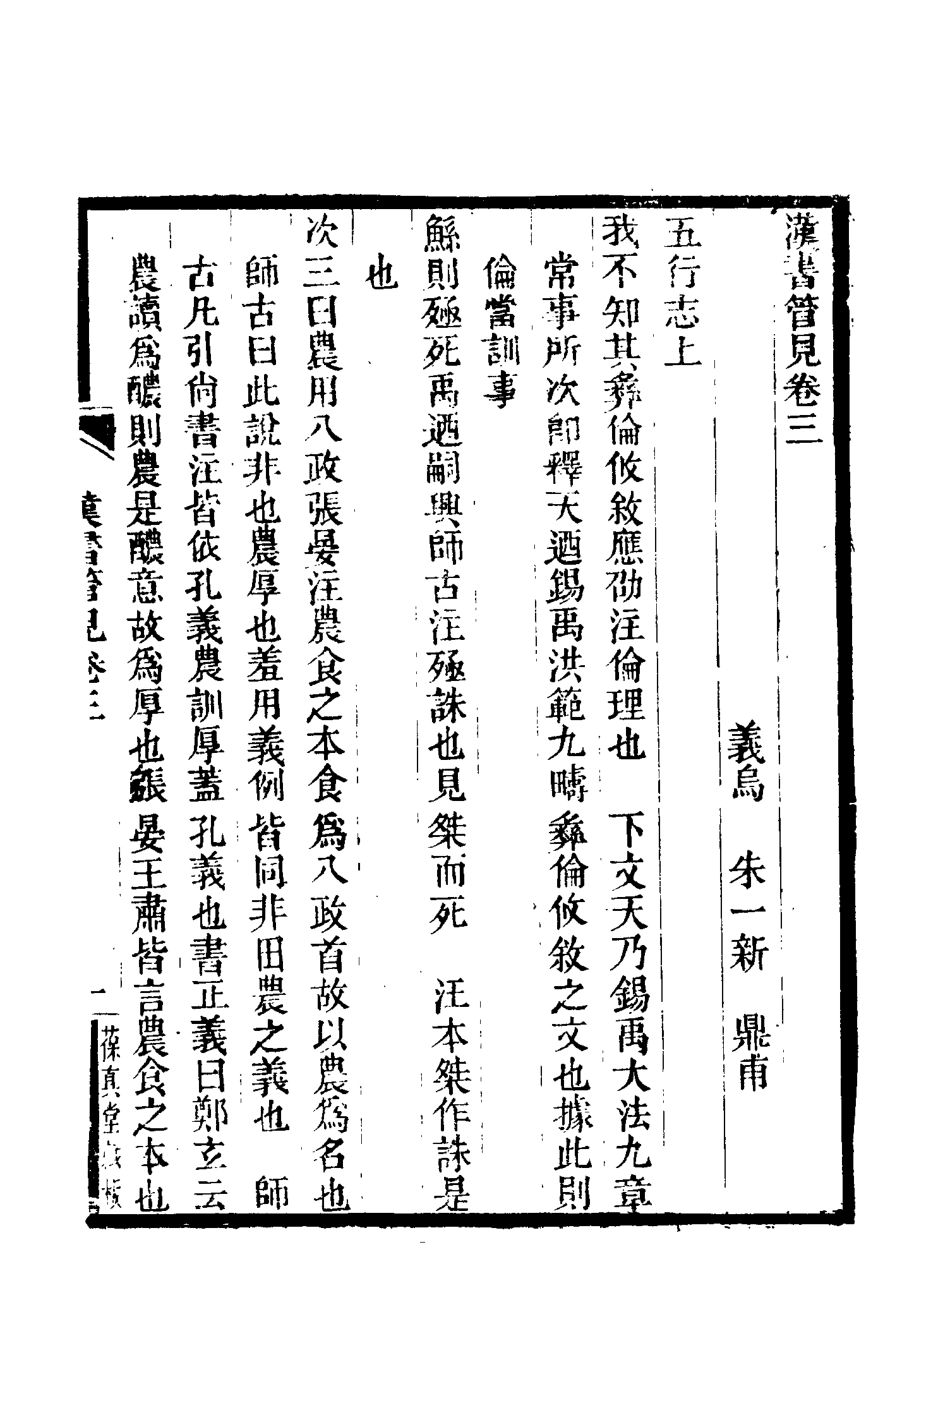 漢書管見卷三
義烏　朱一新　鼎甫
五行志上
我不知其彝倫攸敘應劭注倫理也　下文天乃錫禹大法九章
常事所次卽釋天迺錫禹洪範九疇彝倫攸敘之文也據此則
倫當訓事
鯀則殛死禹迺嗣興師古注殛誅也見桀而死　汪本桀作誅是
也
次三曰農用八政張晏注農食之本食爲八政首故以農爲名也
師古曰此說非也農厚也羞用義例皆同非田農之義也　師
古凡引尙書注皆依孔義農訓厚蓋孔義也書正義曰鄭玄云
農讀爲醲則農是醲意故爲厚也張晏王肅皆言農食之本也
漢書管見卷三
一
葆真堂